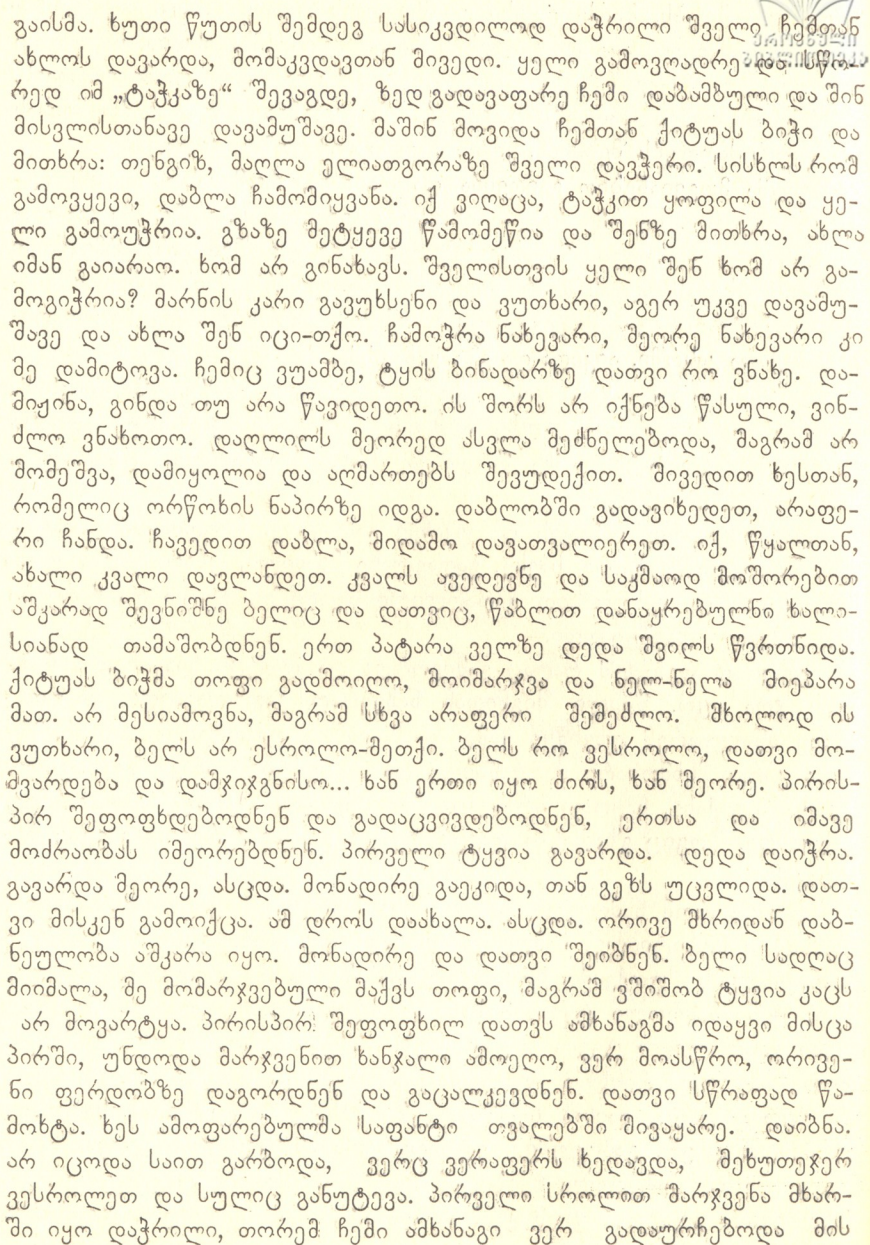 გაისმა. ხუთი წუთის შემდეგ სასიკვდილოდ დაჭრილი შველი ჩემთან
ახლოს დავარდა, მომაკვდავთან მივედი. ყელი გამოვღადრე და სწო-
რედ იმ „ტაჭკაზე“ შევაგდე, ზედ გადავაფარე ჩემი დაბამბული და შინ
მისვლისთანავე დავამუშავე. მაშინ მოვიდა ჩემთან ქიტუას ბიჭი და
მითხრა: თენგიზ, მაღლა ელიათგორაზე შველი დავჭერი. სისხლს რომ
გამოვყევი, დაბლა ჩამომიყვანა. იქ ვიღაცა, ტაჭკით ყოფილა და ყე-
ლი გამოუჭრია. გზაზე მეტყევე წამომეწია და შენზე მითხრა, ახლა
იმან გაიარაო. ხომ არ გინახავს. შველისთვის ყელი შენ ხომ არ გა-
მოგიჭრია? მარნის კარი გავუხსენი და ვუთხარი, აგერ უკვე დავამუ-
შავე და ახლა შენ იცი-თქო. ჩამოჭრა ნახევარი, მეორე ნახევარი კი
მე დამიტოვა. ჩემიც ვუამბე, ტყის ბინადარზე დათვი რო ვნახე. და-
მიჟინა, გინდა თუ არა წავიდეთო. ის შორს არ იქნება წასული, ვინ-
ძლო ვნახოთო. დაღლილს მეორედ ასვლა მეძნელებოდა, მაგრამ არ
მომეშვა, დამიყოლია და აღმართებს შევუდექით. მივედით ხესთან,
რომელიც ორწოხის ნაპირზე იდგა. დაბლობში გადავიხედეთ, არაფე-
რი ჩანდა. ჩავედით დაბლა, მიდამო დავათვალიერეთ. იქ, წყალთან,
ახალი კვალი დავლანდეთ. კვალს ავედევნე და საკმაოდ მოშორებით
აშკარად შევნიშნე ბელიც და დათვიც, წაბლით დანაყრებულნი ხალი-
სიანად თამაშობდნენ. ერთ პატარა ველზე დედა შვილს წვრთნიდა.
ქიტუას ბიჭმა თოფი გადმოიღო, მოიმარჯვა და ნელ-ნელა მიეპარა
მათ. არ მესიამოვნა, მაგრამ სხვა არაფერი შემეძლო. მხოლოდ ის
ვუთხარი, ბელს არ ესროლო-მეთქი. ბელს რო ვესროლო, დათვი მო-
მვარდება და დამჯიჯგნისო... ხან ერთი იყო ძირს, ხან მეორე. პირის-
პირ შეფოფხდებოდნენ და გადაცვივდებოდნენ, ერთსა და იმავე
მოძრაობას იმეორებდნენ. პირველი ტყვია გავარდა. დედა დაიჭრა.
გავარდა მეორე, ასცდა. მონადირე გაეკიდა, თან გეზს უცვლიდა. დათ-
ვი მისკენ გამოიქცა. ამ დროს დაახალა. ასცდა. ორივე მხრიდან დაბ-
ნეულობა აშკარა იყო. მონადირე და დათვი შეიბნენ. ბელი სადღაც
მიიმალა, მე მომარჯვებული მაქვს თოფი, მაგრამ ვშიშობ ტყვია კაცს
არ მოვარტყა. პირისპირ შეფოფხილ დათვს ამხანაგმა იდაყვი მისცა
პირში, უნდოდა მარჯვენით ხანჯალი ამოეღო, ვერ მოასწრო, ორივე-
ნი ფერდობზე დაგორდნენ და გაცალკევდნენ. დათვი სწრაფად წა-
მოხტა. ხეს ამოფარებულმა საფანტი თვალებში მივაყარე. დაიბნა.
არ იცოდა საით გარბოდა, ვერც ვერაფერს ხედავდა, მეხუთეჯერ
ვესროლეთ და სულიც განუტევა. პირველი სროლით მარჯვენა მხარ-
ში იყო დაჭრილი, თორემ ჩემი ამხანაგი ვერ გადაურჩებოდა მის